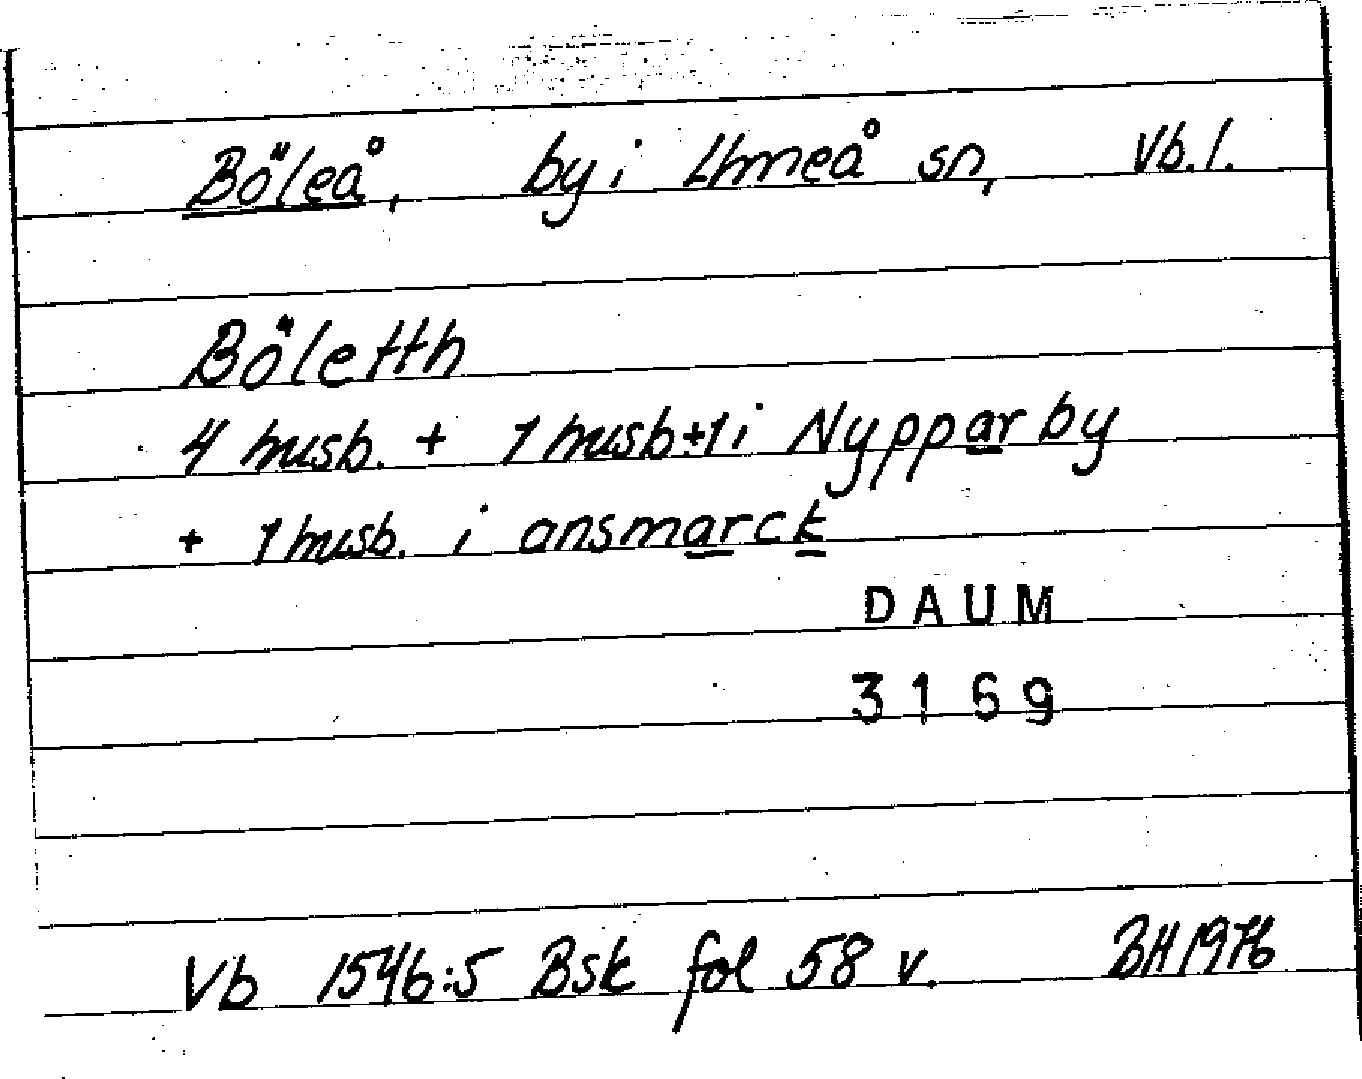 Böleå, by i Umeå sn, Vb.l.
Böletth
4 husb. + 1 husb+1 i Nypparby
+ 1 husb. i ansmarck
DAUM
3169
Vb 1546:5 Bsk fol 58 v. BH 1976